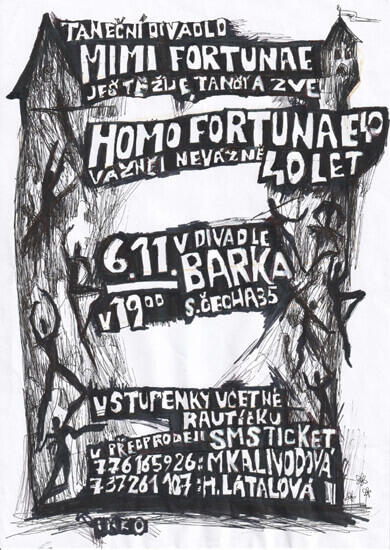 TANEČNÍ DIVADLO
MIMI FORTUNAE
JEŠTĚ ŽIJE, TANČÍ A ZVE
HOMO FORTUNAE
VÁŽNĚ I NEVÁŽNĚ 40 LET
6.11. V DIVADLE
BARKA
V 19 00 S. ČECHA 35
VSTUPENKY VČETNĚ
RAUTÍČKU
V PŘEDPRODEJI SMSTICKET
776165926: M KALIVODOVÁ
737261107: H. LÁTALOVÁ